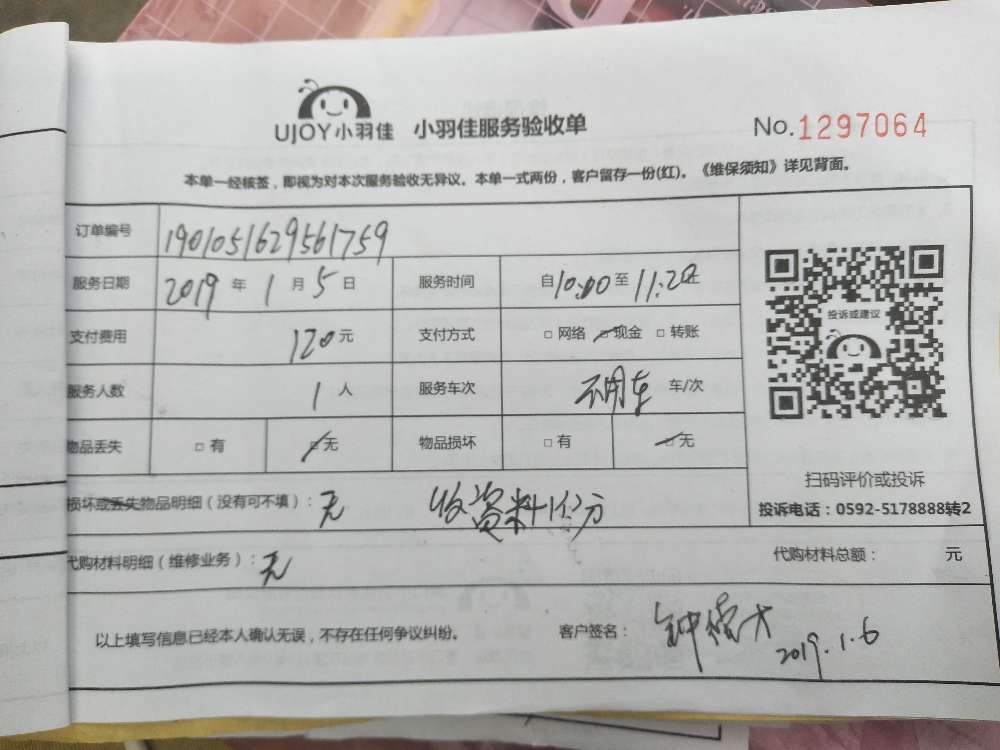 UJOY小羽佳 小羽佳服务验收单 No.1297064
本单一经核签，即视为对本次服务验收无异议。本单一式两份，客户留存一份(红)。《维保须知》详见背面。
订单编号 1901051629561759
服务日期 2019 年 1 月 5 日 服务时间 自 10:00 至 11:20 止
支付费用 120 元 支付方式 □ 网络 □ 现金 □ 转账
服务人数 1 人 服务车次 不用车 车/次
物品丢失 □ 有 □ 无 物品损坏 □ 有 □ 无
损坏或丢失物品明细（没有可不填）： 无 收资料1份
代购材料明细（维修业务）： 无 代购材料总额： 元
投诉或建议
扫码评价或投诉
投诉电话：0592-5178888转2
以上填写信息已经本人确认无误，不存在任何争议纠纷。 客户签名： 2019.1.6